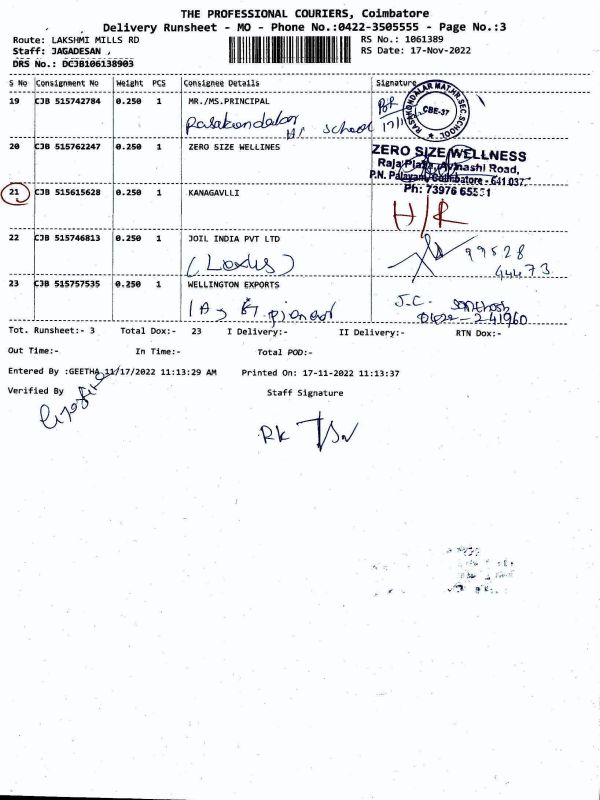 THE PROFESSIONAL COURIERS, Coimbatore
Delivery Runsheet - MO - Phone No.:0422-3505555 - Page No.:3
Route: LAKSHMI MILLS RD RS No.: 1061389
Staff: JAGADESAN , RS Date: 17-Nov-2022
DRS No.: DCJB106138903
S No Consignment No Weight PCS Consignee Details Signature
19 CJB 515742784 0.250 1 MR./MS.PRINCIPAL
school
RASAKONDALAR MAT.HR.SEC.SCHOOL
CBE-37
20 CJB 515762247 0.250 1 ZERO SIZE WELLINES
ZERO SIZE WELLNESS
Raja Plaza, Avinashi Road,
P.N. Palayam, Coimbatore - 641 037.
Ph: 73976 65551
21 CJB 515615628 0.250 1 KANAGAVLLI
H/R
22 CJB 515746813 0.250 1 JOIL INDIA PVT LTD
99528
44473
23 CJB 515757535 0.250 1 WELLINGTON EXPORTS
J.C. Santhosh
Tot. Runsheet:- 3 Total Dox:- 23 I Delivery:- II Delivery:- RTN Dox:-
Out Time:- In Time:- Total POD:-
Entered By :GEETHA 11/17/2022 11:13:29 AM Printed On: 17-11-2022 11:13:37
Verified By Staff Signature
RK